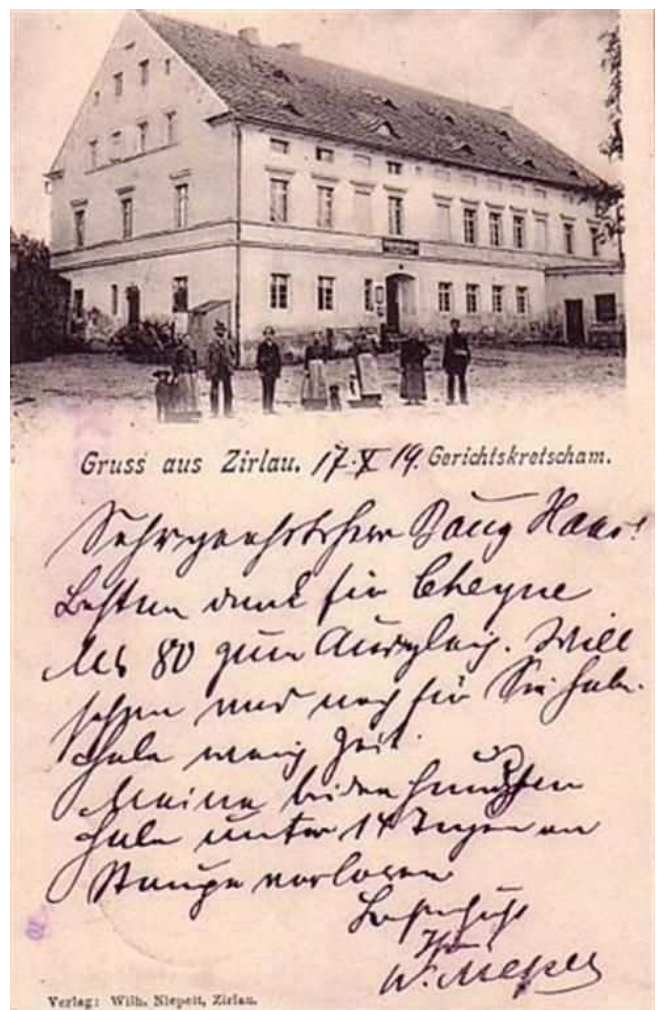 Gruss aus Zirlau. 17. X 19. Gerichtskretscham.
Sehr geehrter Herr Haas!
Besten Dank für
Mk 80 zum Ausgleich. Will
sehen was noch für Sie habe.
Habe wenig Zeit.
Meine beiden
habe unter 14 Tagen an
Staupe verloren
Ihr
W.
Verlag: Wilh. Niepelt, Zirlau.